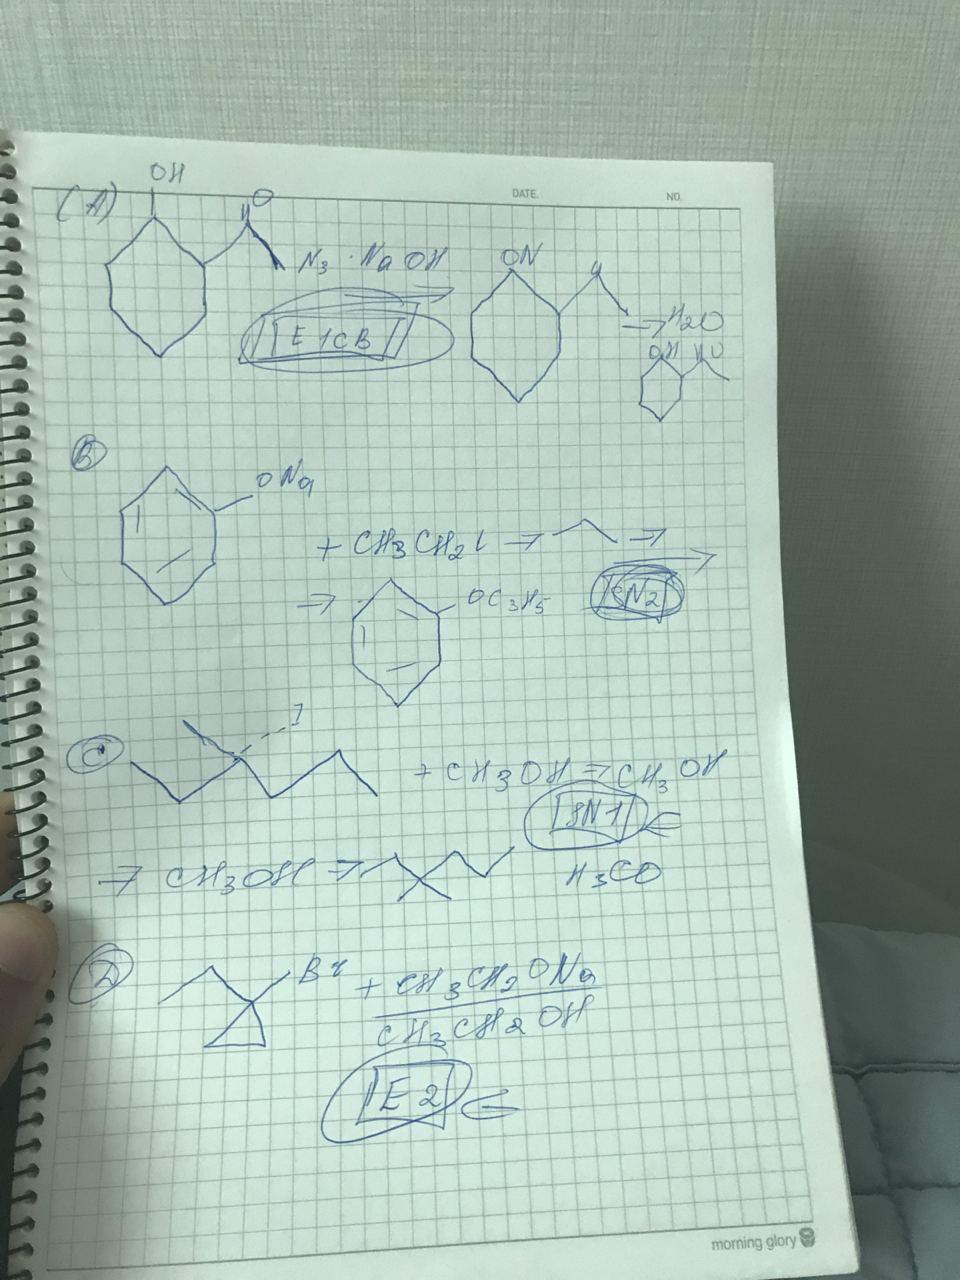 OH
DATE. NO.
(A) O
N3 · NaOH ON
[E1cB] → H2O
OH O
B
ONa
+ CH3CH2I → →
→ OC3H5 [SN2]
I
C + CH3OH ⇒ CH3OH
[SN1] ⇐
→ CH3OH ⇒ H3CO
D Br + CH3CH2ONa
CH3CH2OH
[E2] ⇐
morning glory